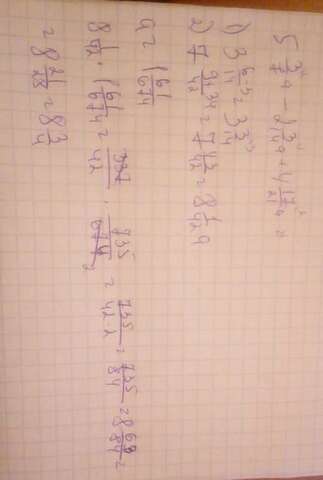 5 3/7 a - 2 3/14 a + 4 17/21 a =
1) 3 6-3/14 = 3 3/14
2) 7 9+34/42 = 7 43/42 = 8 1/42 a
a = 1 61/674
8 1/42 · 1 61/674 = 337/42 · 735/674 = 735/42·2 = 735/84 = 8 63/84 =
= 8 21/28 = 8 3/4